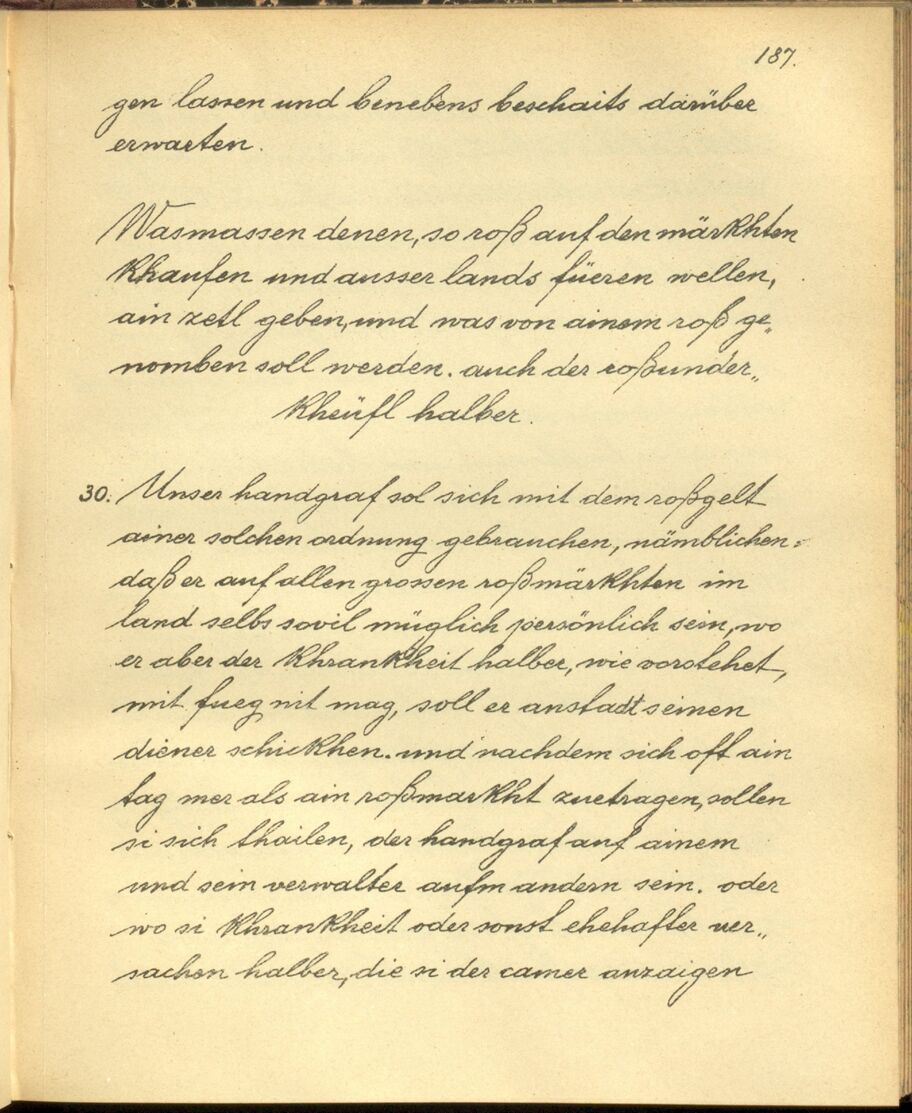 187.
gen lassen und benebens beschaits darüber
erwarten.
Wasmassen denen, so roß auf den märkhten
khaufen und ausser lands füeren wellen,
ain zetl geben, und was von ainem roß ge„
nomben soll werden. auch der roßunder„
kheüfl halber.
30. Unser handgraf sol sich mit dem roßgelt
ainer solchen ordnung gebrauchen, nämblichen:
daß er auf allen grossen roßmärkhten im
land selbs sovil müglich persönlich sein, wo
er aber der khrankheit halber, wie vorstehet,
mit fueg nit mag, soll er anstadt seinen
diener schickhen. und nachdem sich oft ain
tag mer als ain roßmarkht zuetragen, sollen
si sich thailen, der handgraf auf ainem
und sein verwalter aufm andern sein. oder
wo si khrankheit oder sonst ehehafter uer„
sachen halber, die si der camer anzaigen